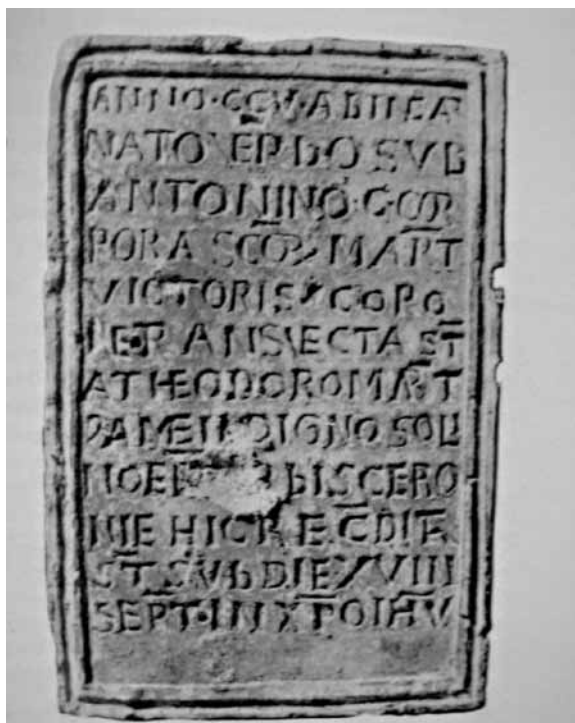 ANNO·CCV·AB INCAR
NATO VERBO SVB
ANTONINO·C·COR
PORA SCOR MART
VICTORIS CORO
NE TRANSVECTA ST
A THEODORO MART
DIGNO SOLI
BIS CERO
NIE HIC RECDITA
ST SVB DIE XVIII
SEPT·IN XPO IHV